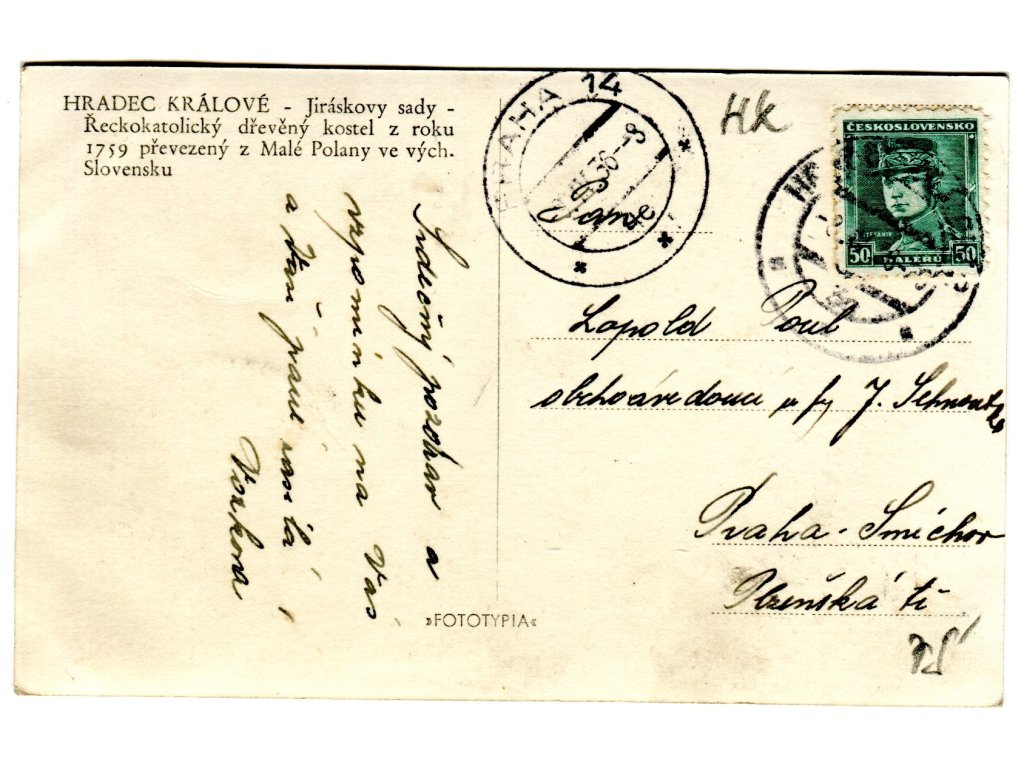 HRADEC KRÁLOVÉ - Jiráskovy sady -
Řeckokatolický dřevěný kostel z roku
1759 převezený z Malé Polany ve vých.
Slovensku
Srdečný pozdrav a
vzpomínku na Vás
a Vaší paní zasílá
»FOTOTYPIA«
PRAHA 14
36-8
Hk
ČESKOSLOVENSKO
ŠTEFÁNIK
50 HALÉŘŮ 50
Pane
Lopold Poul
obchodvedoucí u fy J.
Praha-Smíchov
Plzeňská tř